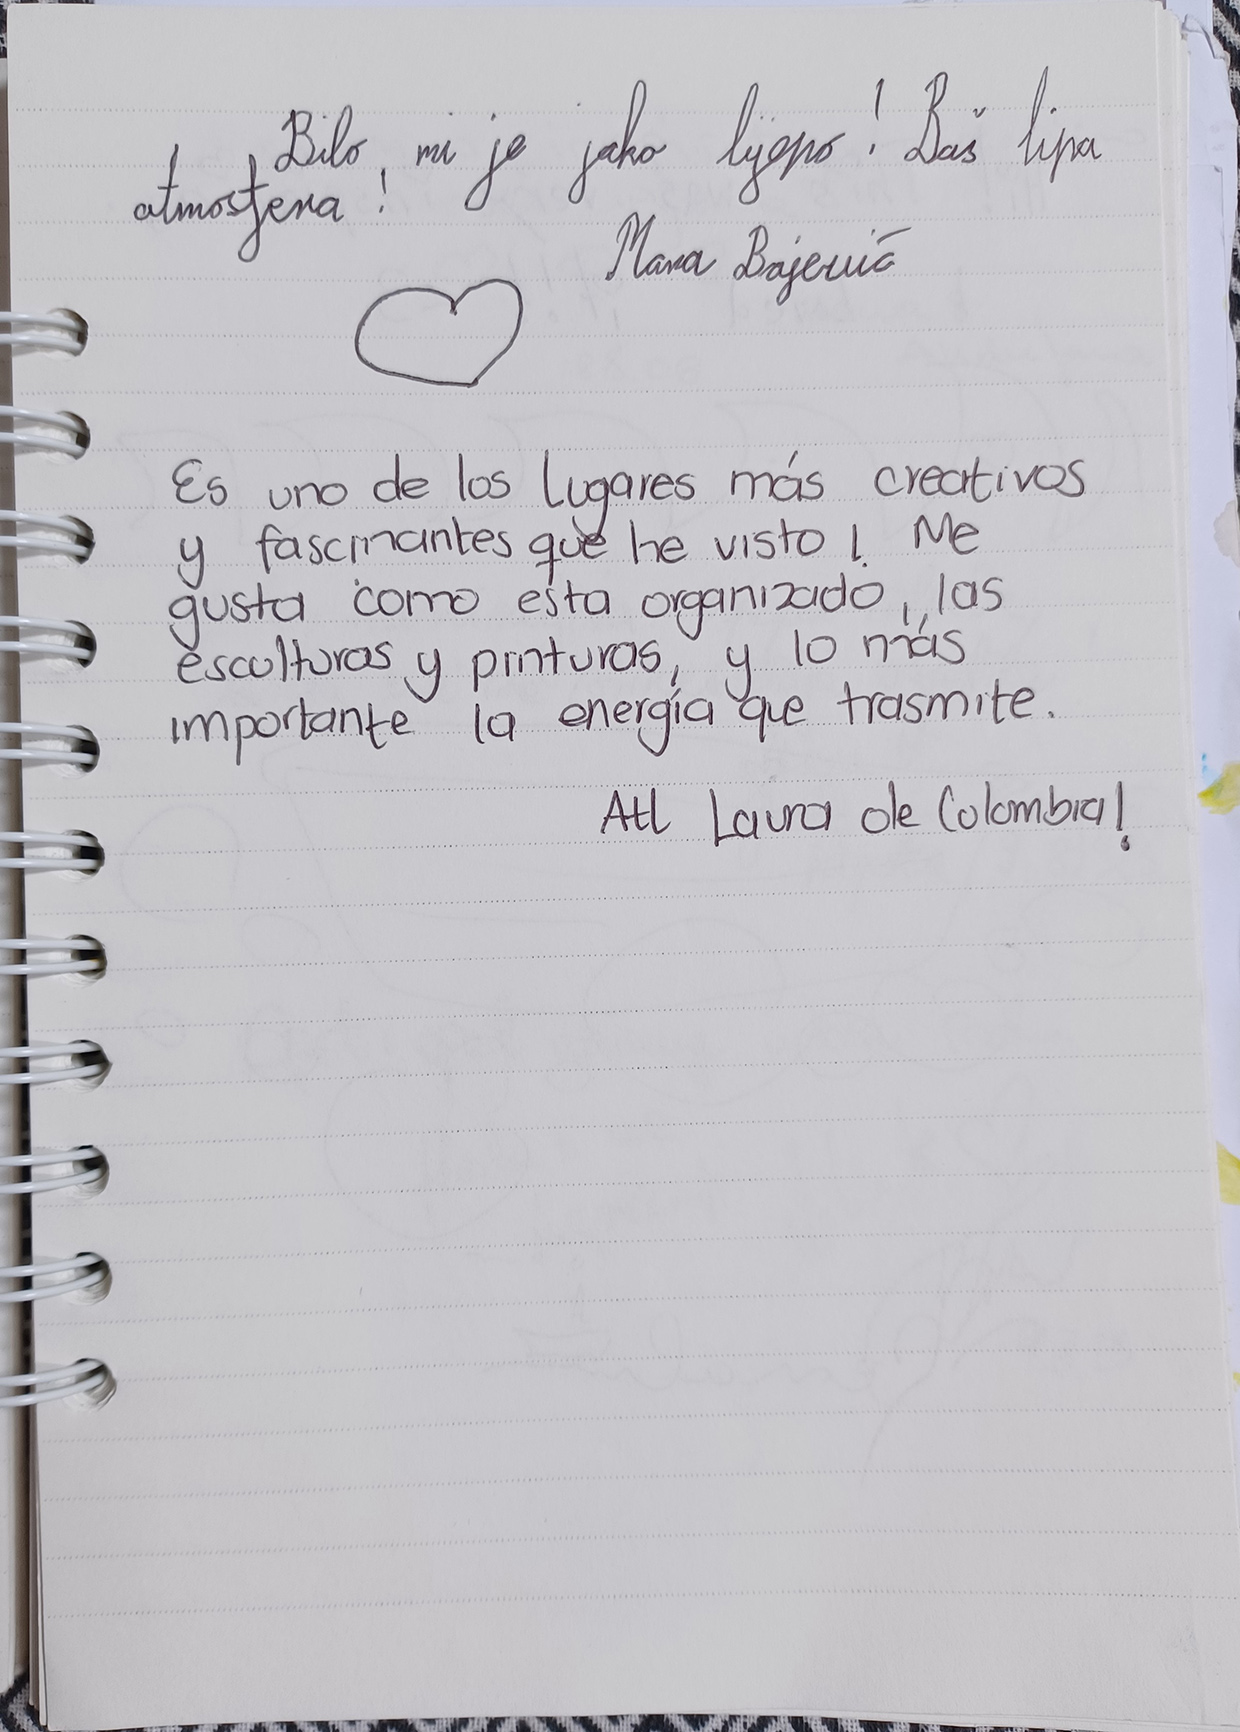 Bilo mi je jako lijepo! Baš lipa
atmosfera!
Mara Bajević
Es uno de los lugares más creativos
y fascinantes que he visto! Me
gusta como esta organizado, las
esculturas y pinturas, y lo más
importante la energía que trasmite.
Att Laura de Colombia!